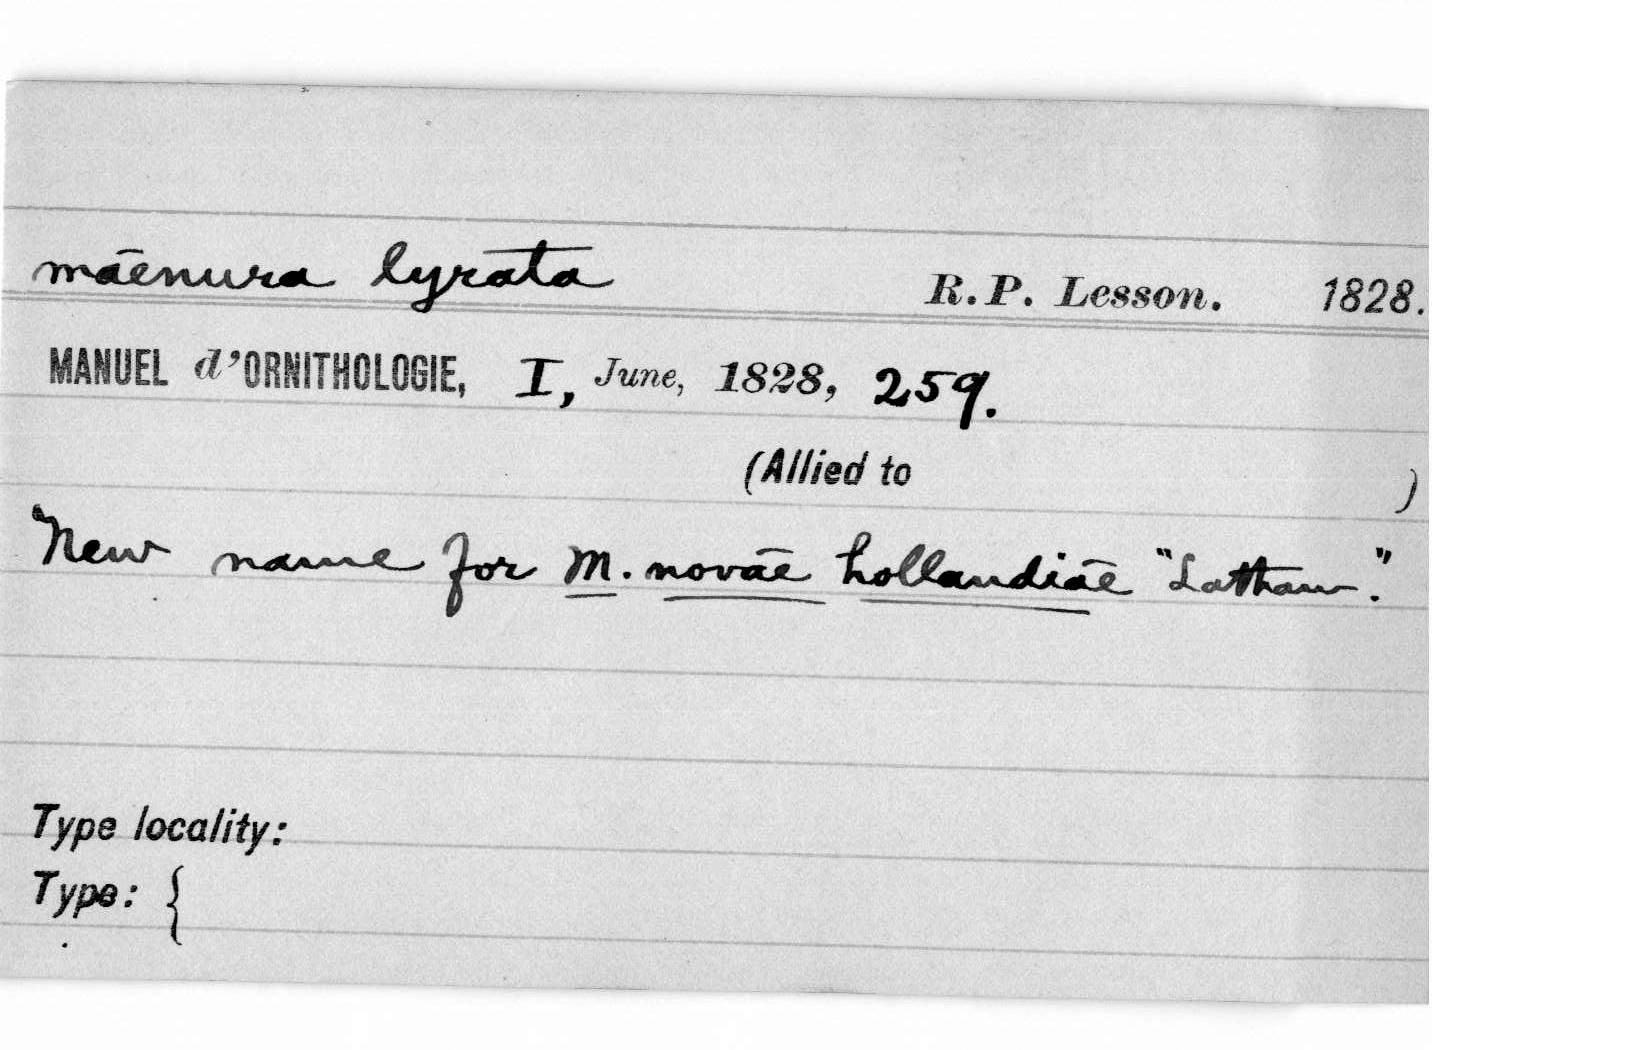 maenura lyrata R.P. Lesson. 1828.
MANUEL d'ORNITHOLOGIE, I, June, 1828, 259.
(Allied to )
New name for M. novae hollandiae "Latham."
Type locality:
Type: {